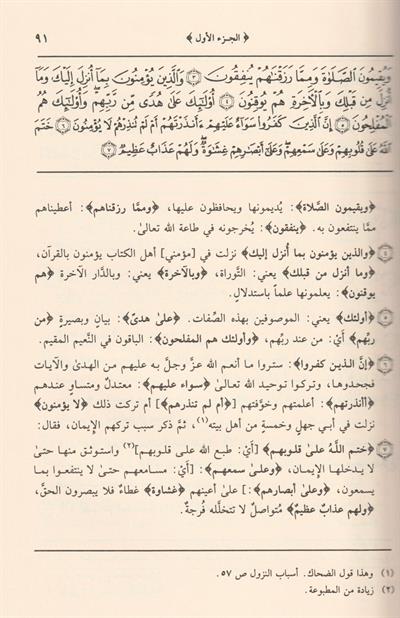 ﴿ الجزء الأول ﴾ ٩١
وَيُقِيمُونَ ٱلصَّلَوٰةَ وَمِمَّا رَزَقْنَٰهُمْ يُنفِقُونَ ٣ وَٱلَّذِينَ يُؤْمِنُونَ بِمَآ أُنزِلَ إِلَيْكَ وَمَآ
أُنزِلَ مِن قَبْلِكَ وَبِٱلْءَاخِرَةِ هُمْ يُوقِنُونَ ٤ أُوْلَٰٓئِكَ عَلَىٰ هُدًى مِّن رَّبِّهِمْ وَأُوْلَٰٓئِكَ هُمُ
ٱلْمُفْلِحُونَ ٥ إِنَّ ٱلَّذِينَ كَفَرُوا۟ سَوَآءٌ عَلَيْهِمْ ءَأَنذَرْتَهُمْ أَمْ لَمْ تُنذِرْهُمْ لَا يُؤْمِنُونَ ٦ خَتَمَ
ٱللَّهُ عَلَىٰ قُلُوبِهِمْ وَعَلَىٰ سَمْعِهِمْ وَعَلَىٰٓ أَبْصَٰرِهِمْ غِشَٰوَةٌ وَلَهُمْ عَذَابٌ عَظِيمٌ ٧
﴿ويقيمون الصَّلاة﴾: يُديمونها ويحافظون عليها، ﴿وممَّا رزقناهم﴾: أعطيناهم
ممَّا ينتفعون به. ﴿ينفقون﴾: يُخرجونه في طاعة الله تعالىٰ.
٤ ﴿والذين يؤمنون بما أُنزل إليك﴾ نزلت في [مؤمني] أهل الكتاب يؤمنون بالقرآن،
﴿وما أنزل من قبلك﴾ يعني: التَّوراة، ﴿وبالآخرة﴾ يعني: وبالدَّار الآخرة ﴿هم
يوقنون﴾: يعلمونها علماً باستدلالٍ.
٥ ﴿أولئك﴾ يعني: الموصوفين بهذه الصِّفات. ﴿علىٰ هدىً﴾: بيان وبصيرةٍ ﴿من
ربِّهم﴾ أيْ: من عند ربِّهم، ﴿وأولئك هم المفلحون﴾: الباقون في النَّعيم المقيم.
٦ ﴿إنَّ الذين كفروا﴾: ستروا ما أنعم الله عزَّ وجلَّ به عليهم من الهدىٰ والآيات
فجحدوها، وتركوا توحيد الله تعالىٰ ﴿سواء عليهم﴾: معتدلٌ ومتساوٍ عندهم
﴿أأنذرتهم﴾: أعلمتهم وخوَّفتهم [﴿أم لم تنذرهم﴾] أم تركت ذلك ﴿لا يؤمنون﴾
نزلت في أبي جهلٍ وخمسةٍ من أهل بيته(١)، ثمَّ ذكر سبب تركهم الإِيمان، فقال:
٧ ﴿ختم اللَّهُ علىٰ قلوبهم﴾ [أيْ: طبع الله علىٰ قلوبهم](٢) واستوثق منها حتىٰ
لا يدخلها الإِيمان، ﴿وعلىٰ سمعهم﴾: [أيْ: مسامعهم حتىٰ لا ينتفعوا بما
يسمعون، ﴿وعلىٰ أبصارهم﴾:] علىٰ أعينهم ﴿غشاوة﴾ غطاءٌ فلا يبصرون الحقَّ،
﴿ولهم عذاب عظيمٌ﴾ مُتواصلٌ لا تتخلَّله فُرجةٌ.
(١) وهذا قول الضحاك. أسباب النزول ص ٥٧.
(٢) زيادة من المطبوعة.